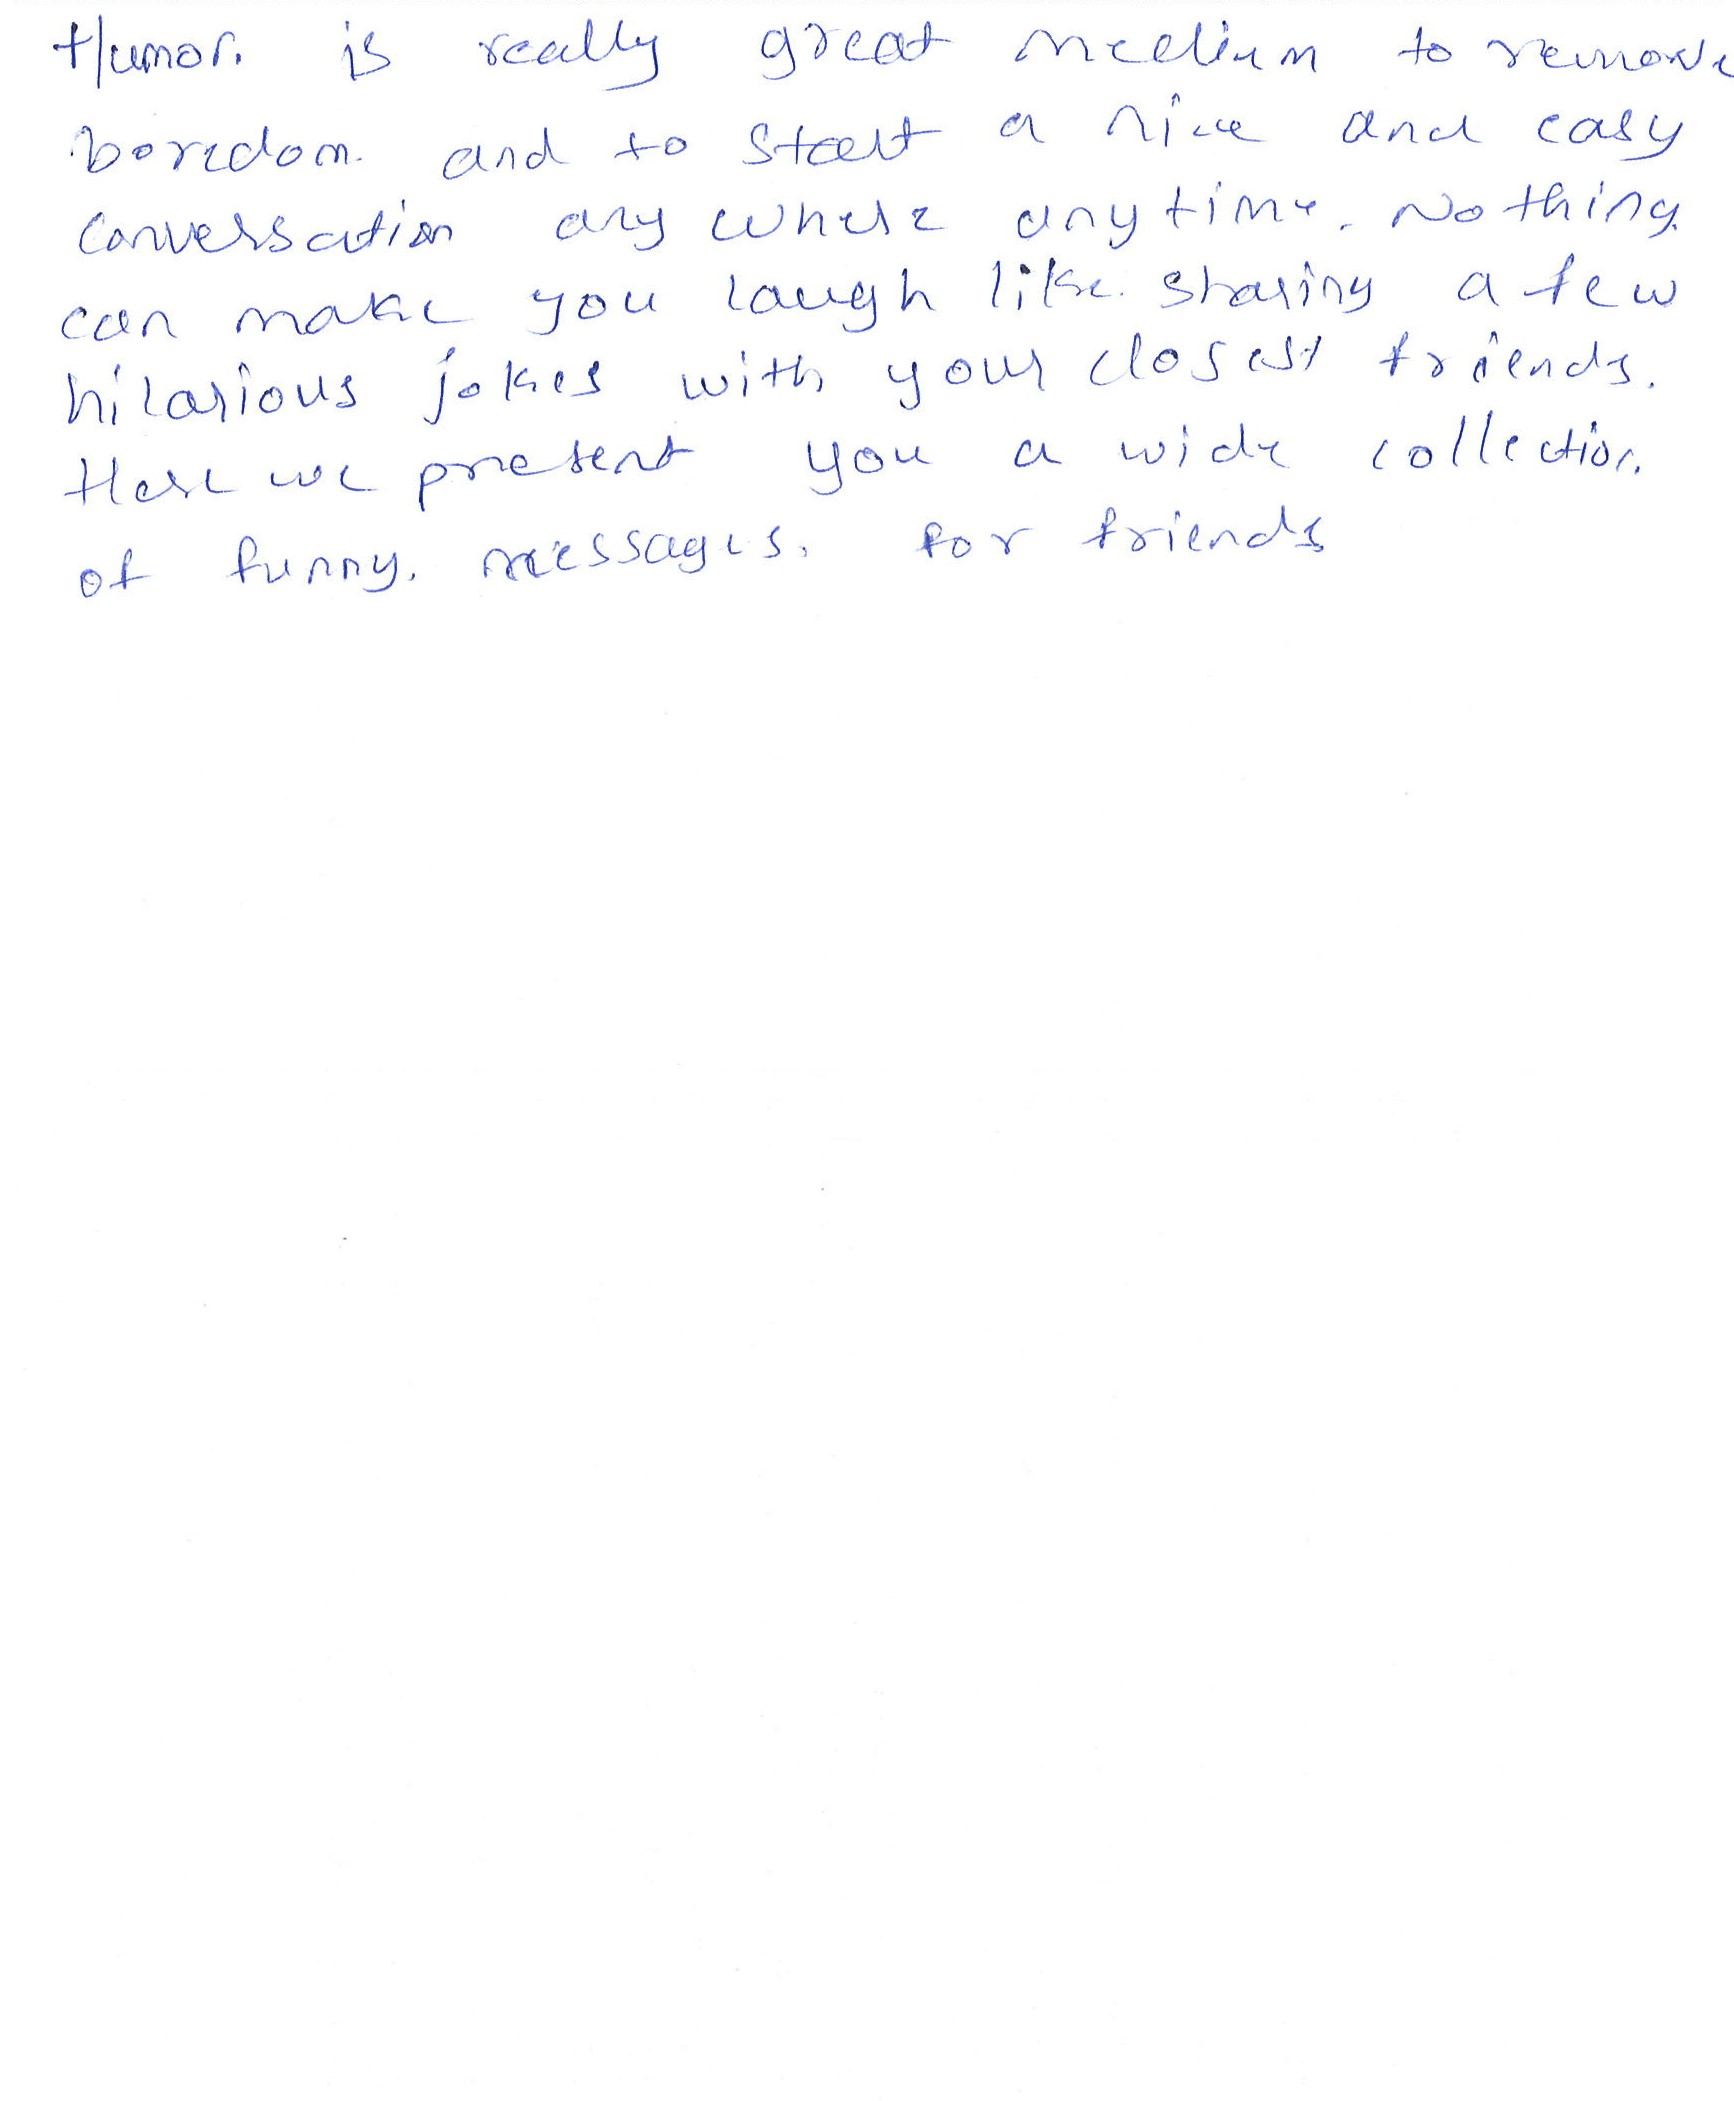 Humor. is really great medium to remove
boredom. and to start a nice and easy
conversation any where anytime. Nothing.
can make you laugh like. sharing a few
hilarious jokes with your closest friends.
Here we present you a wide collection.
of funny. messages. for friends